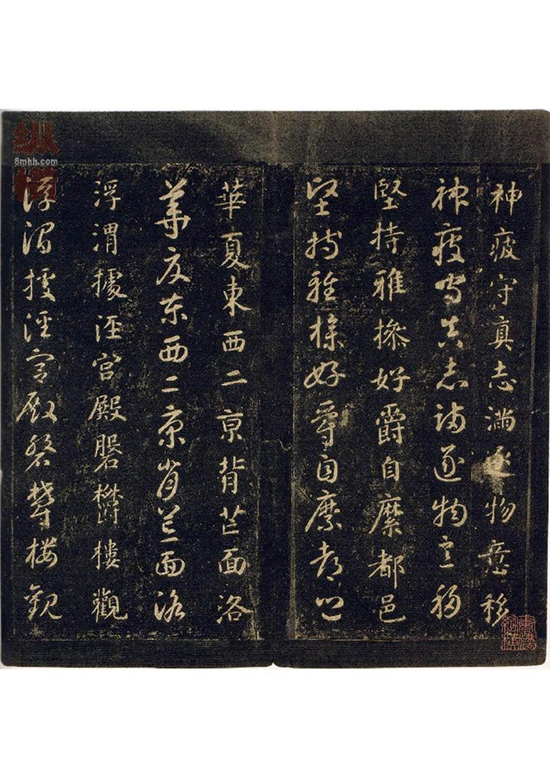 神疲守真志滿逐物意移
神疲守真志滿逐物意移
堅持雅操好爵自縻都邑
堅持雅操好爵自縻都邑
華夏東西二京背芒面洛
華夏東西二京背芒面洛
浮渭據涇宮殿磐欝樓觀
浮渭據涇宮殿磐欝樓觀
纵
8mhh.com